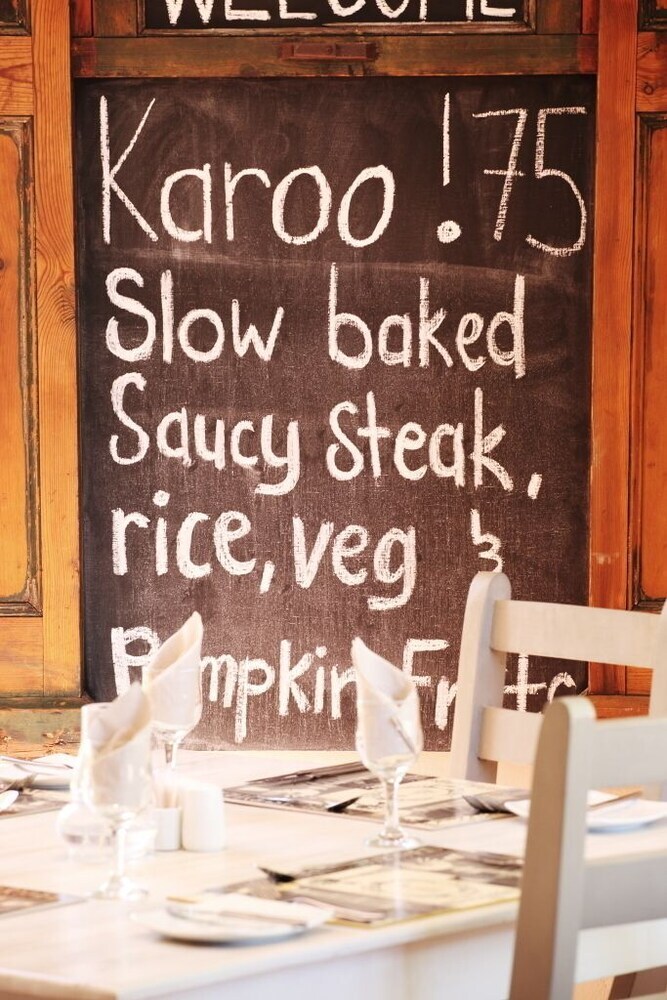 WELCOME
Karoo ! 75
Slow baked
Saucy Steak,
rice, veg &
Pumpkin